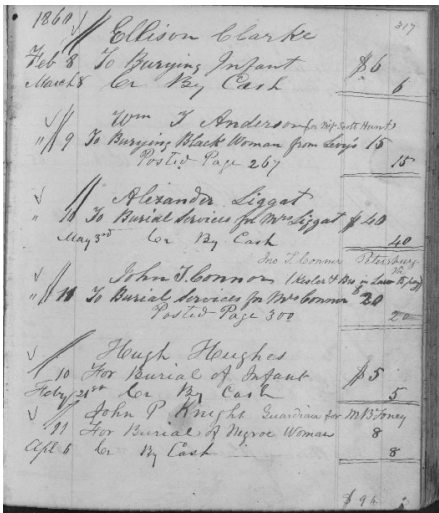 1860 317
Ellison Clarke
Feb 8 To Burying Infant $6
March 8 Cr By Cash 6
Wm T Anderson for Scott Hunt
" 9 To Burying Black Woman from Levy's 15
Posted Page 267 15
Alexander Liggat
" 10 To Burial Services for Mrs Liggat $40
May 3rd Cr By Cash 40
Jno T Connor Petersburg Va
John T. Connor (Kesler & Bro in Law
" 10 To Burial Services for Mrs Connor $20
Posted Page 300 20
Hugh Hughes
" 10 For Burial of Infant $5
Feby 21st Cr By Cash 5
John P Knight Guardian for
" 11 For Burial of Negroe Woman 8
Apl 6 Cr By Cash 8
$94